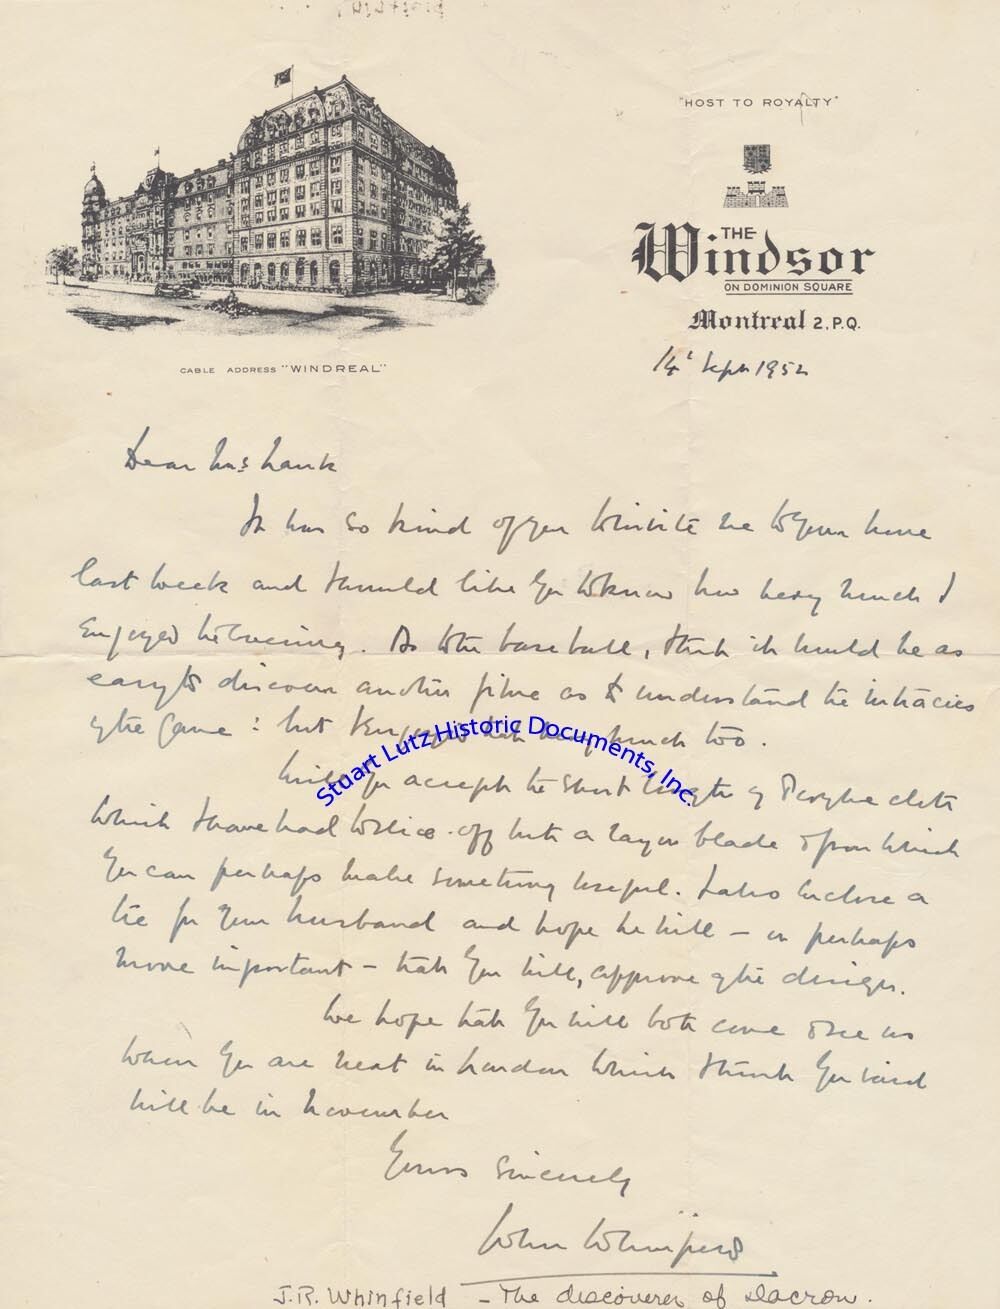 "HOST TO ROYALTY"
THE
Windsor
ON DOMINION SQUARE
Montreal 2, P.Q.
CABLE ADDRESS "WINDREAL"
14' Sept 1952
Dear Mrs
It was so kind of you to invite me to your home
last week and I should like you to know how very much I
enjoyed the evening. As to the baseball, I think it would be as
easy to discover another fibre as to understand the intricacies
of the game : but I enjoyed that very much too.
Stuart Lutz Historic Documents, Inc.
Will you accept the short length of Terylene cloth
which I have had to slice off with a razor blade & from which
you can perhaps make something useful. I also enclose a
tie for your husband and hope he will – or perhaps
more important – that you will, approve of the design.
We hope that you will both come & see us
when you are next in London which I think you said
will be in November
Yours sincerely
John Whinfield
J.R. Whinfield – The discoverer of Dacron.